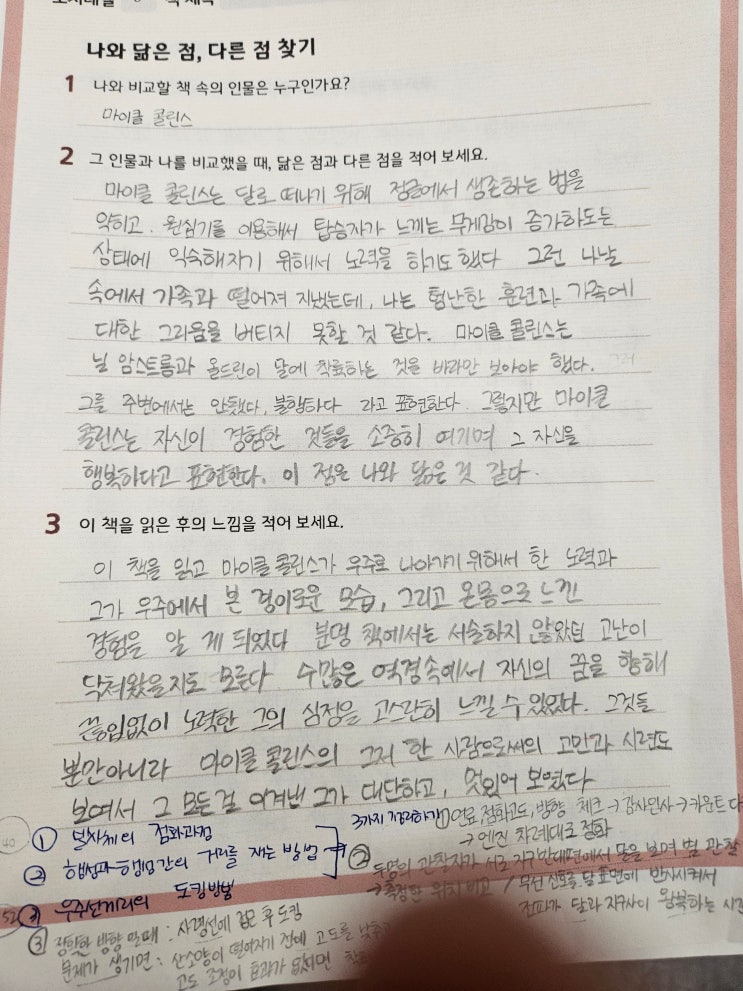 나와 닮은 점, 다른 점 찾기
1 나와 비교할 책 속의 인물은 누구인가요?
마이클 콜린스
2 그 인물과 나를 비교했을 때, 닮은 점과 다른 점을 적어 보세요.
마이클 콜린스는 달로 떠나기 위해 정글에서 생존하는 법을
익히고. 원심기를 이용해서 탑승자가 느끼는 무게감이 증가하는
상태에 익숙해지기 위해서 노력을 하기도 했다 그런 나날
속에서 가족과 떨어져 지냈는데, 나는 험난한 훈련과 가족에
대한 그리움을 버티지 못할 것 같다. 마이클 콜린스는
닐 암스트롱과 올드린이 달에 착륙하는 것을 바라만 보아야 했다.
그를 주변에서는 안됐다, 불행하다 라고 표현한다. 그렇지만 마이클
콜린스는 자신이 경험한 것들을 소중히 여기며 그 자신을
행복하다고 표현한다. 이 점은 나와 닮은 것 같다.
3 이 책을 읽은 후의 느낌을 적어 보세요.
이 책을 읽고 마이클 콜린스가 우주로 나아가기 위해서 한 노력과
그가 우주에서 본 경이로운 모습, 그리고 온몸으로 느낀
경험을 알 게 되었다 분명 책에서는 서술하지 않았던 고난이
닥쳐왔을지도 모른다 수많은 역경속에서 자신의 꿈을 향해
끊임없이 노력한 그의 심정을 고스란히 느낄 수 있었다. 그것들
뿐만아니라 마이클 콜린스의 그저 한 사람으로써의 고민과 시련도
보여서 그 모든걸 이겨낸 그가 대단하고, 멋있어 보였다
① 발사체의 점화과정
② 행성과 행성간의 거리를 재는 방법
③ 우주선끼리의 도킹방법
3가지 정리하기 ① 연료 점화고도, 방향 체크 → 감사인사 → 카운트다
→ 엔진 차례대로 점화
② 두명의 관찰자가 서로 지구반대편에서 달을 보며 별 관찰
→ 측정한 위치 비교 / 무선 신호를 달 표면에 반사시켜서
전파가 달과 지구사이 왕복하는 시간
③ 정확한 방향 일때: 사령선에 접근 후 도킹
문제가 생기면: 산소량이 떨어지기 전에 고도를 낮추고
고도 조정이 효과가 없으면